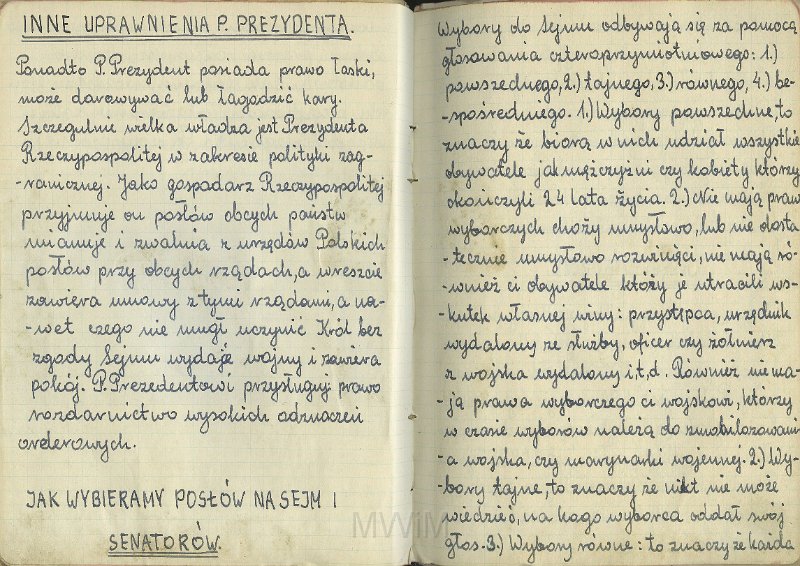 INNE UPRAWNIENIA P. PREZYDENTA.
Ponadto P. Prezydent posiada prawo łaski,
może darowywać lub łagodzić kary.
Szczegulnie wielka władza jest Prezydenta
Rzeczypospolitej w zakresie polityki zag-
-ranicznej. Jako gospodarz Rzeczypospolitej
przyjmuje on posłów obcych państw
mianuje i zwalnia z urzędów Polskich
posłów przy obcych rządach, a wreszcie
zawiera umowy z tymi rządami, a na-
-wet czego nie mugł uczynić Król bez
zgody Sejmu wydaje wojny i zawiera
pokój. P. Prezedentowi przysługuj prawo
rozdarnictwo wysokich odznaczeń
orderowych.
JAK WYBIERAMY POSŁÓW NA SEJM I
SENATORÓW.
Wybory do Sejmu odbywają się za pomocą
głosowania czteroprzymiotniowego: 1.)
powszednego, 2.) tajnego, 3.) równego, 4.) be-
-spośredniego. 1.) Wybory powszechne, to
znaczy że biorą w nich udział wszystkie
obywatele jak mężczyźni czy kobiety, którzy
okończyli 24 lata życia. 2.) Nie mają praw
wyborczych chorzy umysłowo, lub nie dosta
-tecznie umysłowo rozwinięci, nie mają ró-
-wnież ci obywatele który je utracili ws-
-kutek własnej winy: przystępca, urzędnik
wydalony ze służby, oficer czy żołnierz
z wojska wydalony i.t.d. Rownież nie ma-
-ją prawa wyborczego ci wojskowi, którzy
w czasie wyborów należą do zmobilozowani-
-a wojska, czy marynarki wojennej. 2.) Wy-
-bory tajne, to znaczy że nikt nie może
wiedzieć, na kogo wyborca oddał swój
głos. 3.) Wybory równe: to znaczy że każda
MWiM